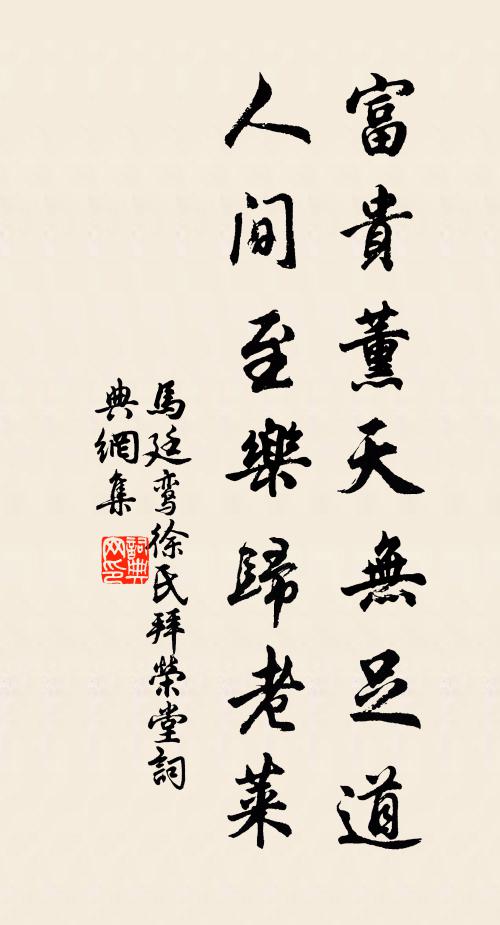 富貴薰天無足道
人间至樂歸老萊
馬廷鸾徐氏拜榮堂詞
典網集
詞典
网印